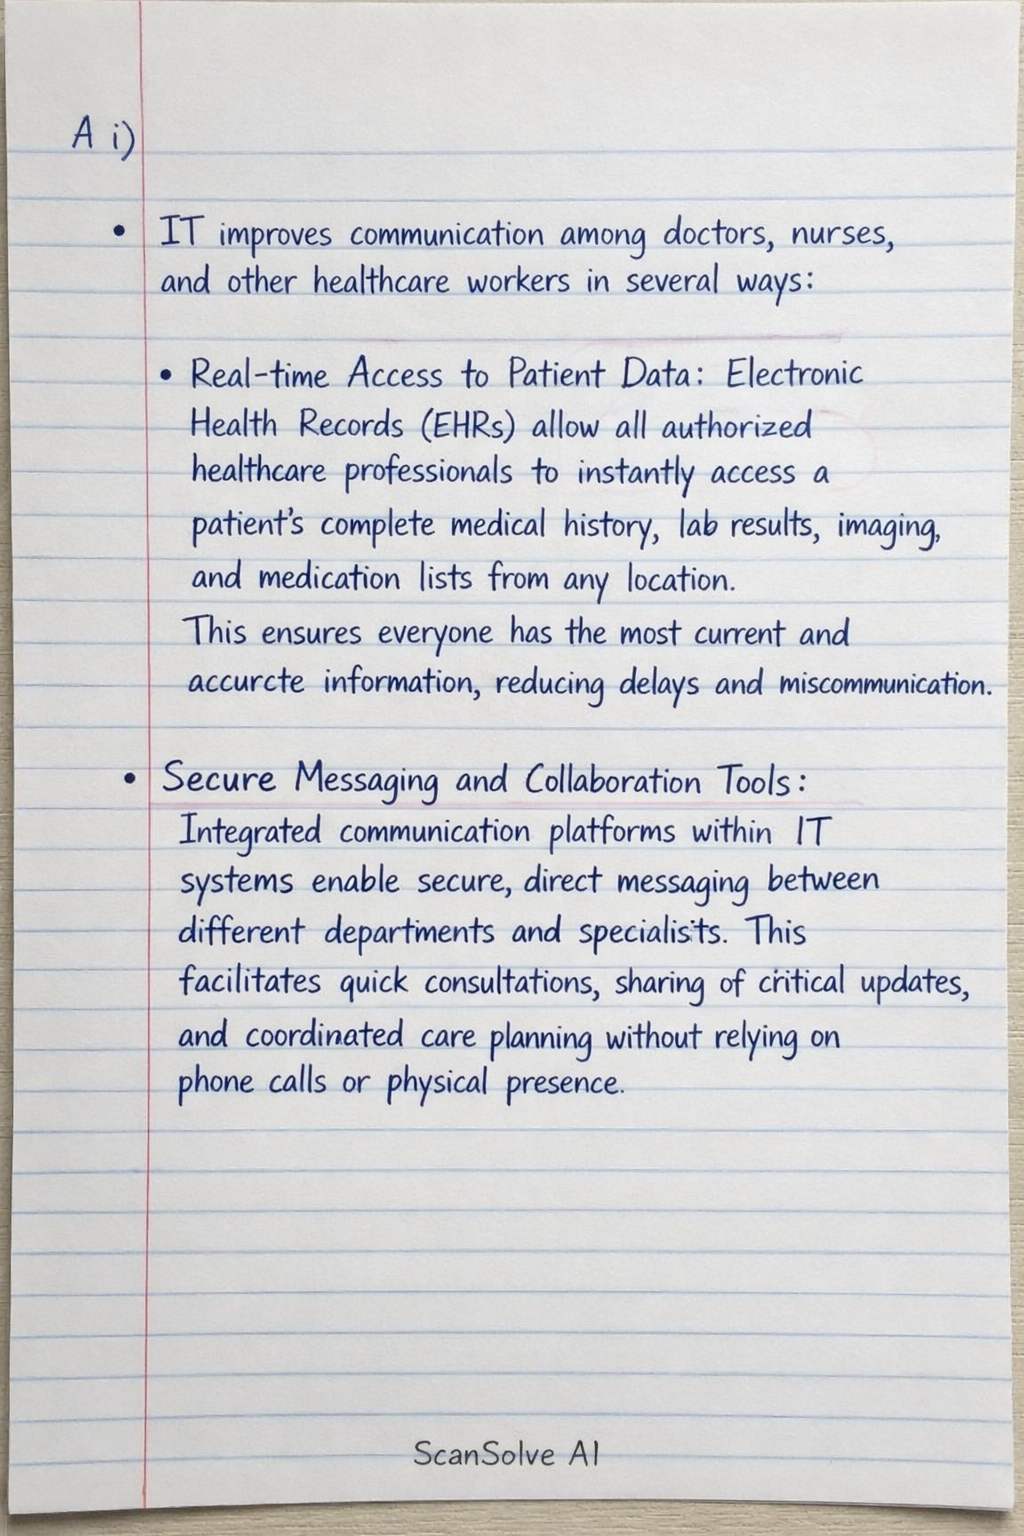 A i)
• IT improves communication among doctors, nurses,
and other healthcare workers in several ways:
• Real-time Access to Patient Data: Electronic
Health Records (EHRs) allow all authorized
healthcare professionals to instantly access a
patient's complete medical history, lab results, imaging,
and medication lists from any location.
This ensures everyone has the most current and
accurcte information, reducing delays and miscommunication.
• Secure Messaging and Collaboration Tools:
Integrated communication platforms within IT
systems enable secure, direct messaging between
different departments and specialists. This
facilitates quick consultations, sharing of critical updates,
and coordinated care planning without relying on
phone calls or physical presence.
ScanSolve AI